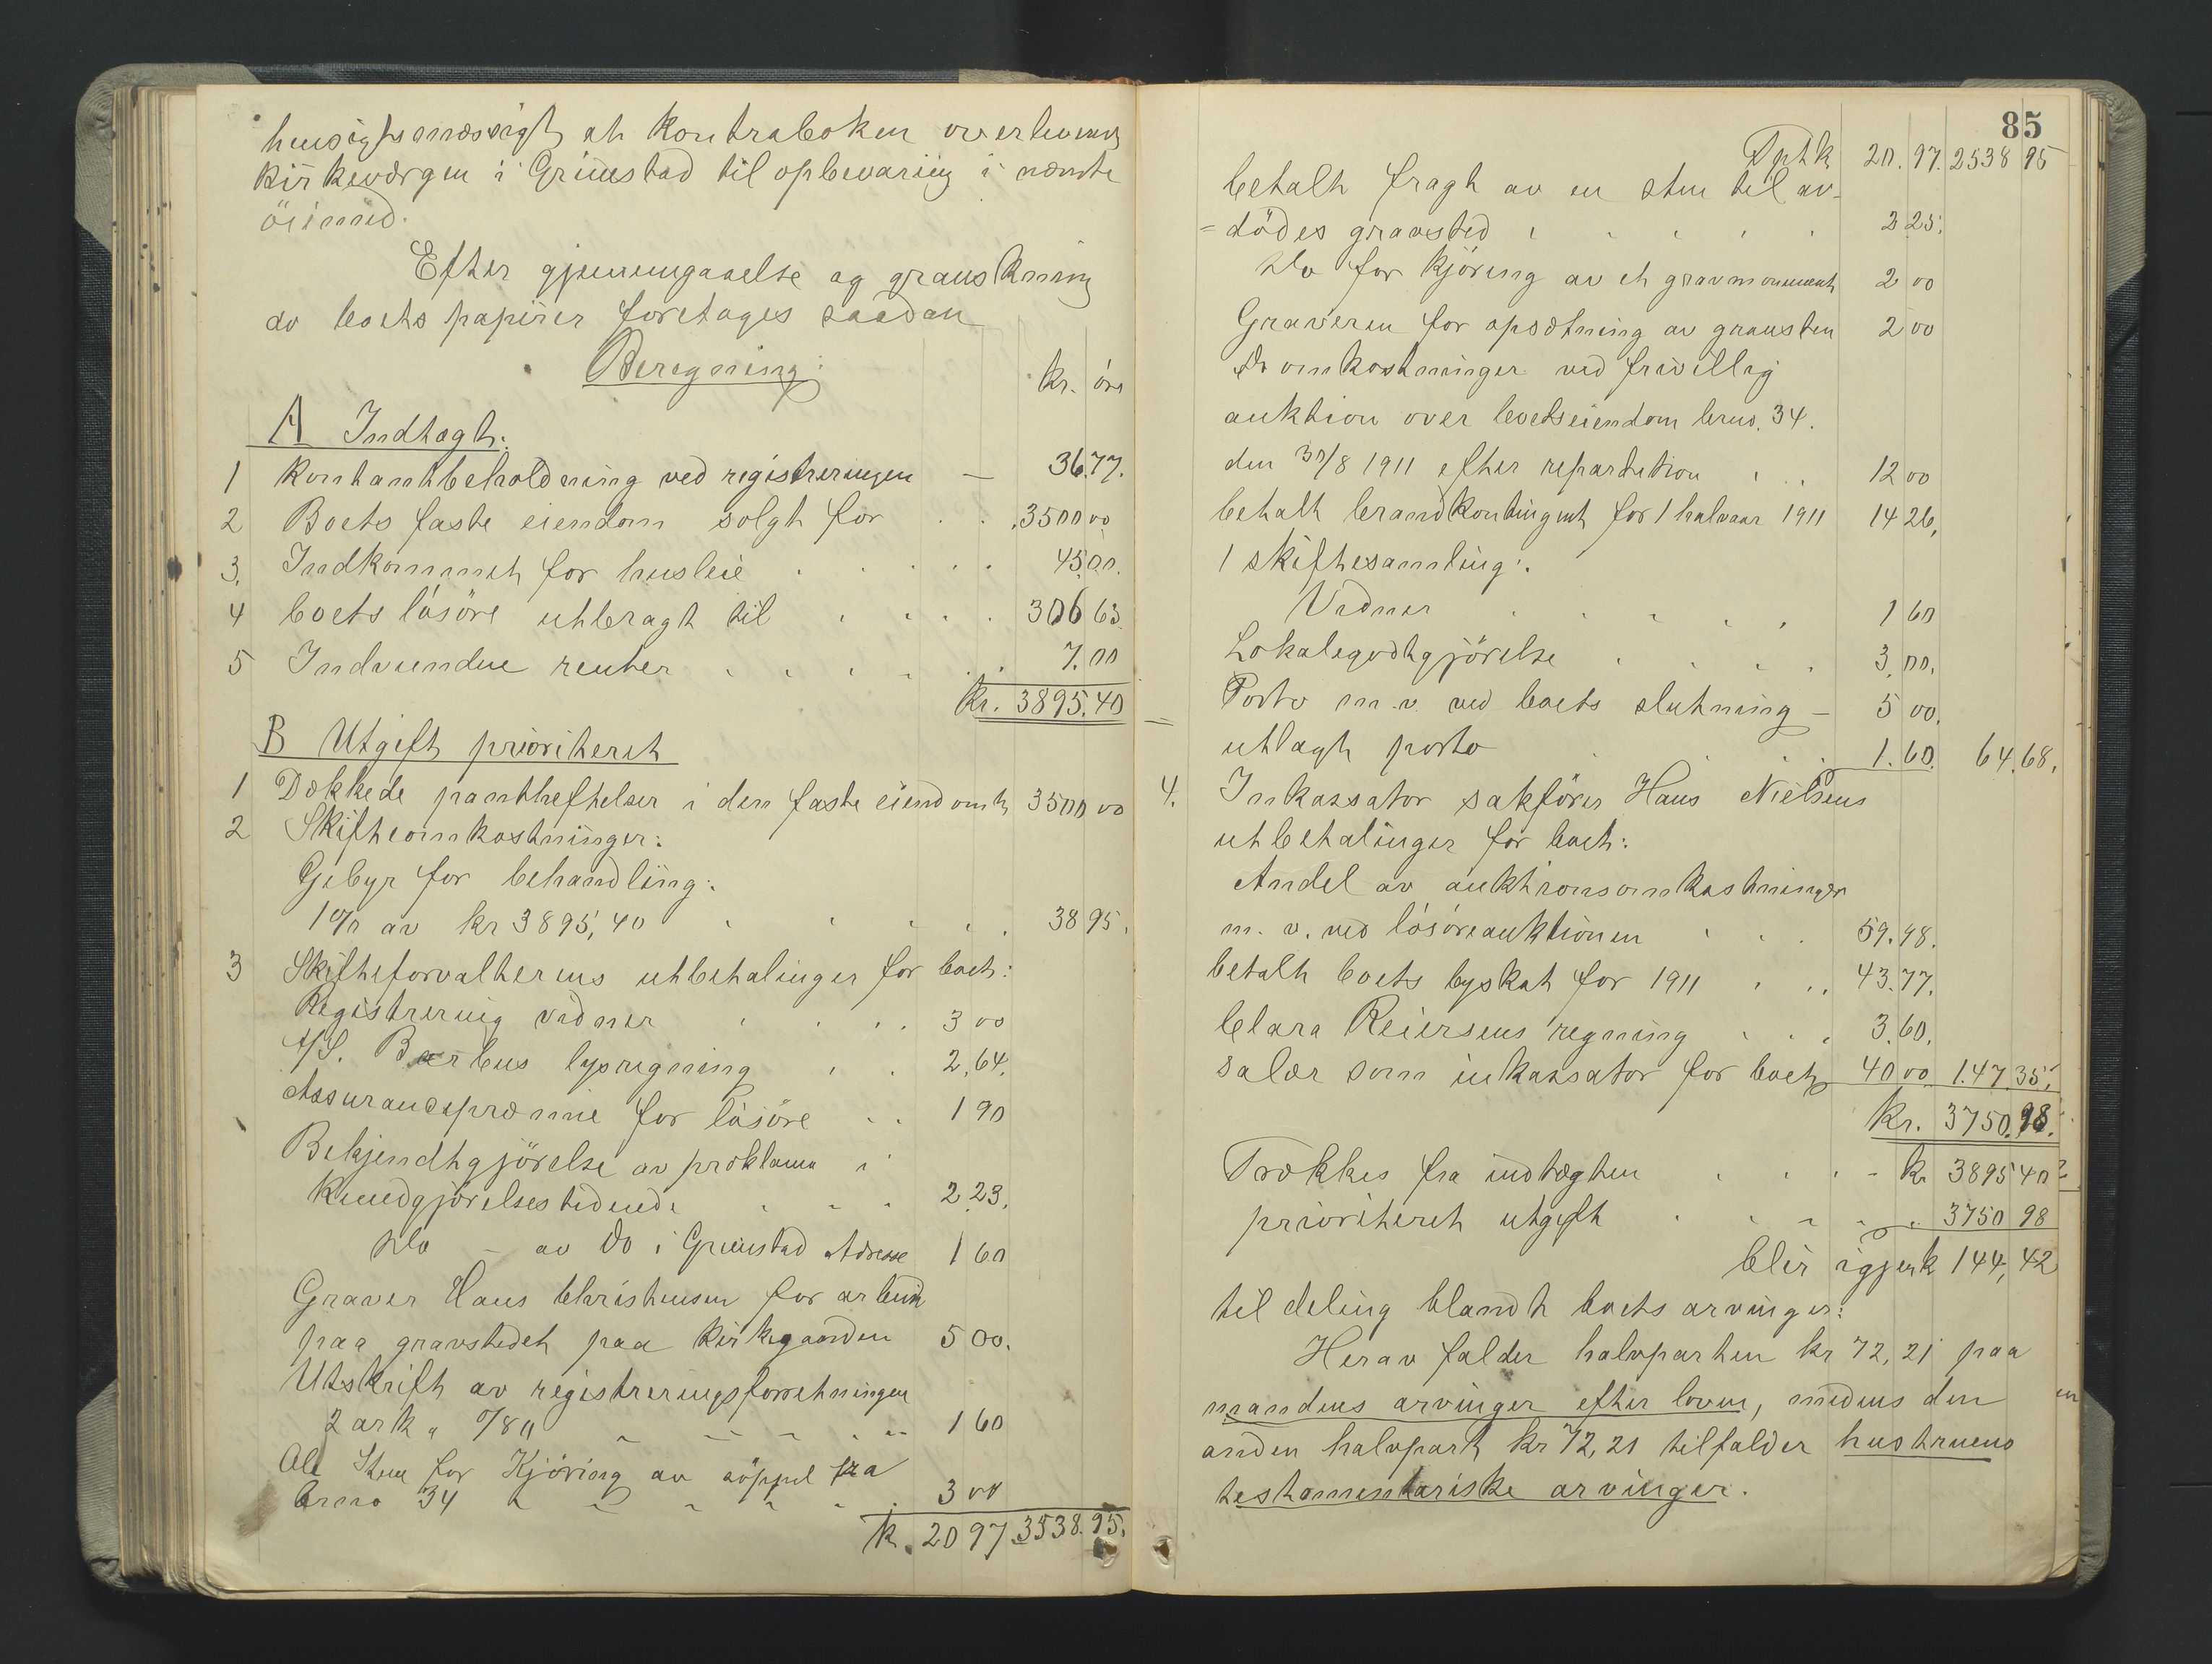 hensigtsmæssigt at kontraboken overleveres
kirkeværgen i Grimstad til opbevaring i nævnte
öiemed.
Efter gjennemgaaelse og granskning
av boets papirer foretages saadan
Beregning:
kr. öre
A Indtægt:
1 Kontantbeholdning ved registreringen — 36.77.
2 Boets faste eiendom solgt for . . 3500 00
3. Indkommet for husleie . . . . . 45.00.
4 boets lösöre utbragt til . . . . 306 63.
5 Indvundne renter . . . . . 7.00
Kr. 3895.40
B Utgift prioriteret
1 Dækkede pantheftelser i den faste eiendom kr 3500 00
2 Skifteomkostninger:
Gebyr for behandling:
1 % av kr 3895,40 . . . . . 38 95.
3 Skifteforvalterens utbetalinger for boet:
Registrering vidner . . . . 3 00
A/S. Barbus lysregning . . 2,64.
Assurancepræmie for lösöre . . 1 90
Bekjendtgjörelse av proklama i
Kundgjörelsestidende . . . 2 23.
Do – av Do i Grimstad Adresse 1 60
Graver Hans Christensen for arbeide
paa gravstedet paa kirkegaarden 5 00.
Utskrift av registreringsforretningen
2 ark a 0/80 1 60
Ole Stene for Kjöring av söppel fra
brno 34 . . . . . 3 00
k. 20 97 3538.95.
85
Tptk 20.97. 2538 95
betalt fragt av en sten til av-
=dödes gravsted . . . . . 2 25.
Do for kjöring av et gravmonument 2 00
Graveren for opsætning av gravsten 2 00
Do omkostninger ved frivillig
auktion over boets eiendom brno. 34.
den 30/8 1911 efter repartition . . 12 00
betalt brandkontingent for 1 halvaar 1911 14 26.
1 skiftesamling:
Vidner . . . . . 1 60
Lokalegodtgjörelse . . . . 3 00.
Porto m.v. ved boets slutning – 5 00.
utlagt porto . . . 1.60. 64.68.
4. Inkassator sakförer Hans Nielsens
utbetalinger for boet:
Andel av auktionsomkostninger
m. v. ved lösöreauktionen . . . 59.98.
betalt boets byskat for 1911 . . . 43.77.
Clara Reiersens regning . . . 3.60.
Salær som inkassator for boet 40 00 147.35.
Kr. 3750.98.
Trækkes fra indtægten . . . – kr 3895 40
prioriteret utgift . . . . . 3750 98
blir igjen k 144,42
til deling blandt boets arvinger:
Herav falder halvparten kr 72,21 paa
mandens arvinger efter loven, medens den
anden halvpart kr 72,21 tilfalder hustruens
testamentariske arvinger.